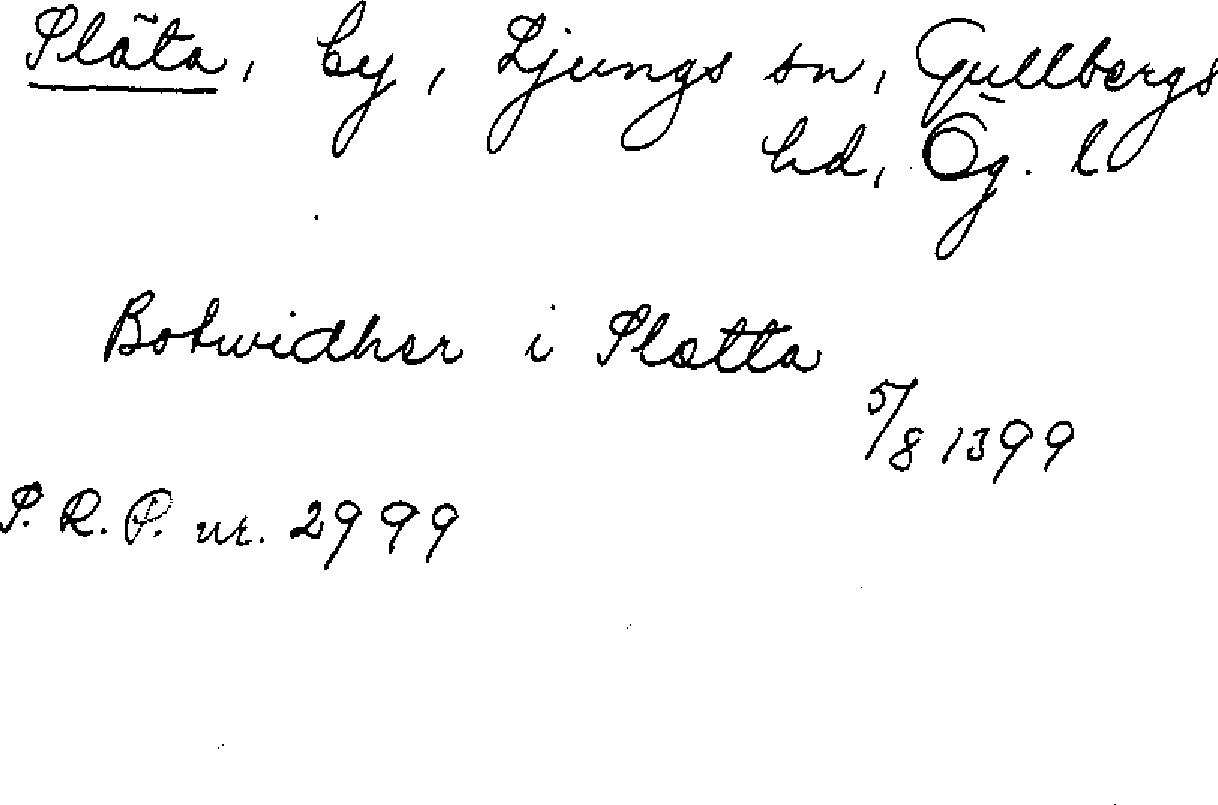 Släta, by, Ljungs sn, Gullbergs
hd, Ög. l
Botwidher i Slætta
5/8 1399
S. R. P. nr. 2999